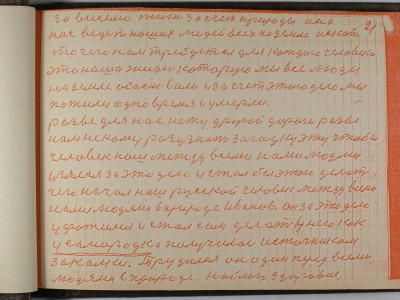 за вместо жить за счет природы она
нас ведет наших людей всех по земле иметь 2)
то чего нам требуется для каждого человека
это наша жизнь которую мы все люди
на земле обоюдно за счет этого дела мы
пожили одно время и умерли.
разве для нас нету другой дороги разве
нам некому разузнать загадку эту чтобы
человек наш между всеми нами людьми
взялся за это дело и стал бы это делать
чего начал наш русской человек между всеми
нами людями в природе Иванов. Он за это дело
ухватился и стал сам делать у него как
у самородка получилось источником
закалки. Трудился он один перед всеми
людями в природе. на благо здоровия,